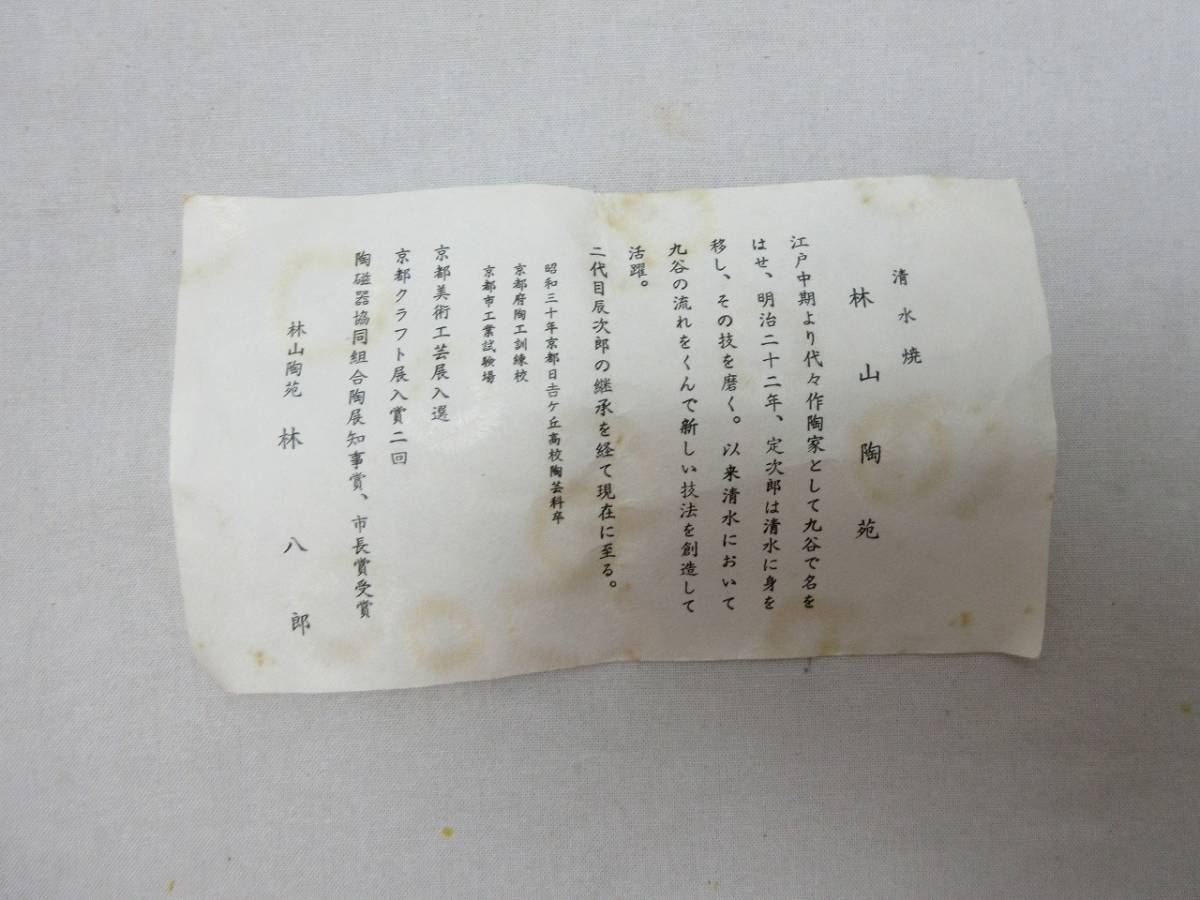 清水焼
林山陶苑
江戸中期より代々作陶家として九谷で名を
はせ、明治二十二年、定次郎は清水に身を
移し、その技を磨く。以来清水において
九谷の流れをくんで新しい技法を創造して
活躍。
二代目辰次郎の継承を経て現在に至る。
昭和三十年京都日吉ケ丘高校陶芸科卒
京都府陶工訓練校
京都市工業試験場
京都美術工芸展入選
京都クラフト展入賞二回
陶磁器協同組合陶展知事賞、市長賞受賞
林山陶苑 林八郎